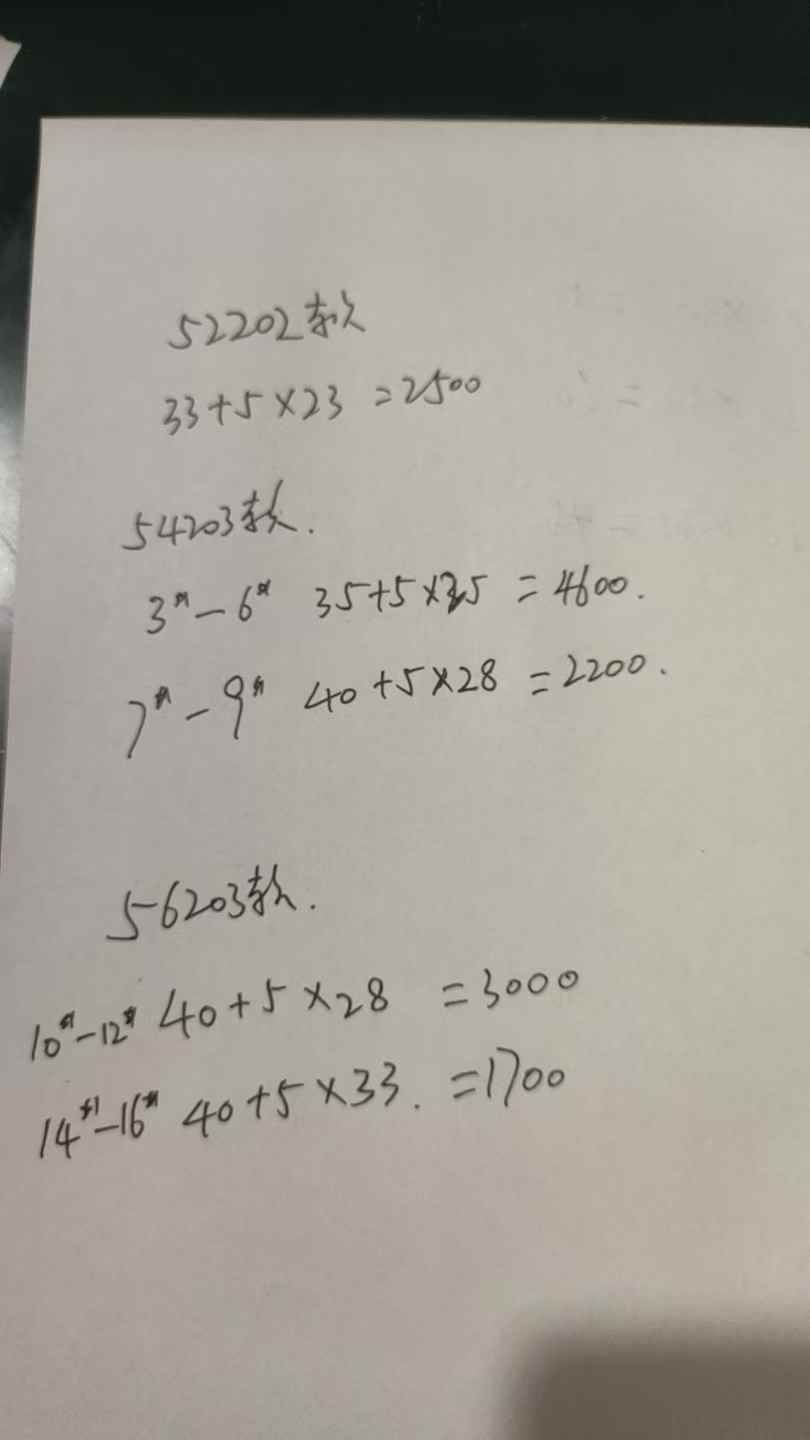 52202款
33+5×23=2500
54203款.
3#-6# 35+5×25=4600.
7#-9# 40+5×28=2200.
56203款.
10#-12# 40+5×28=3000
14#-16# 40+5×33.=1700